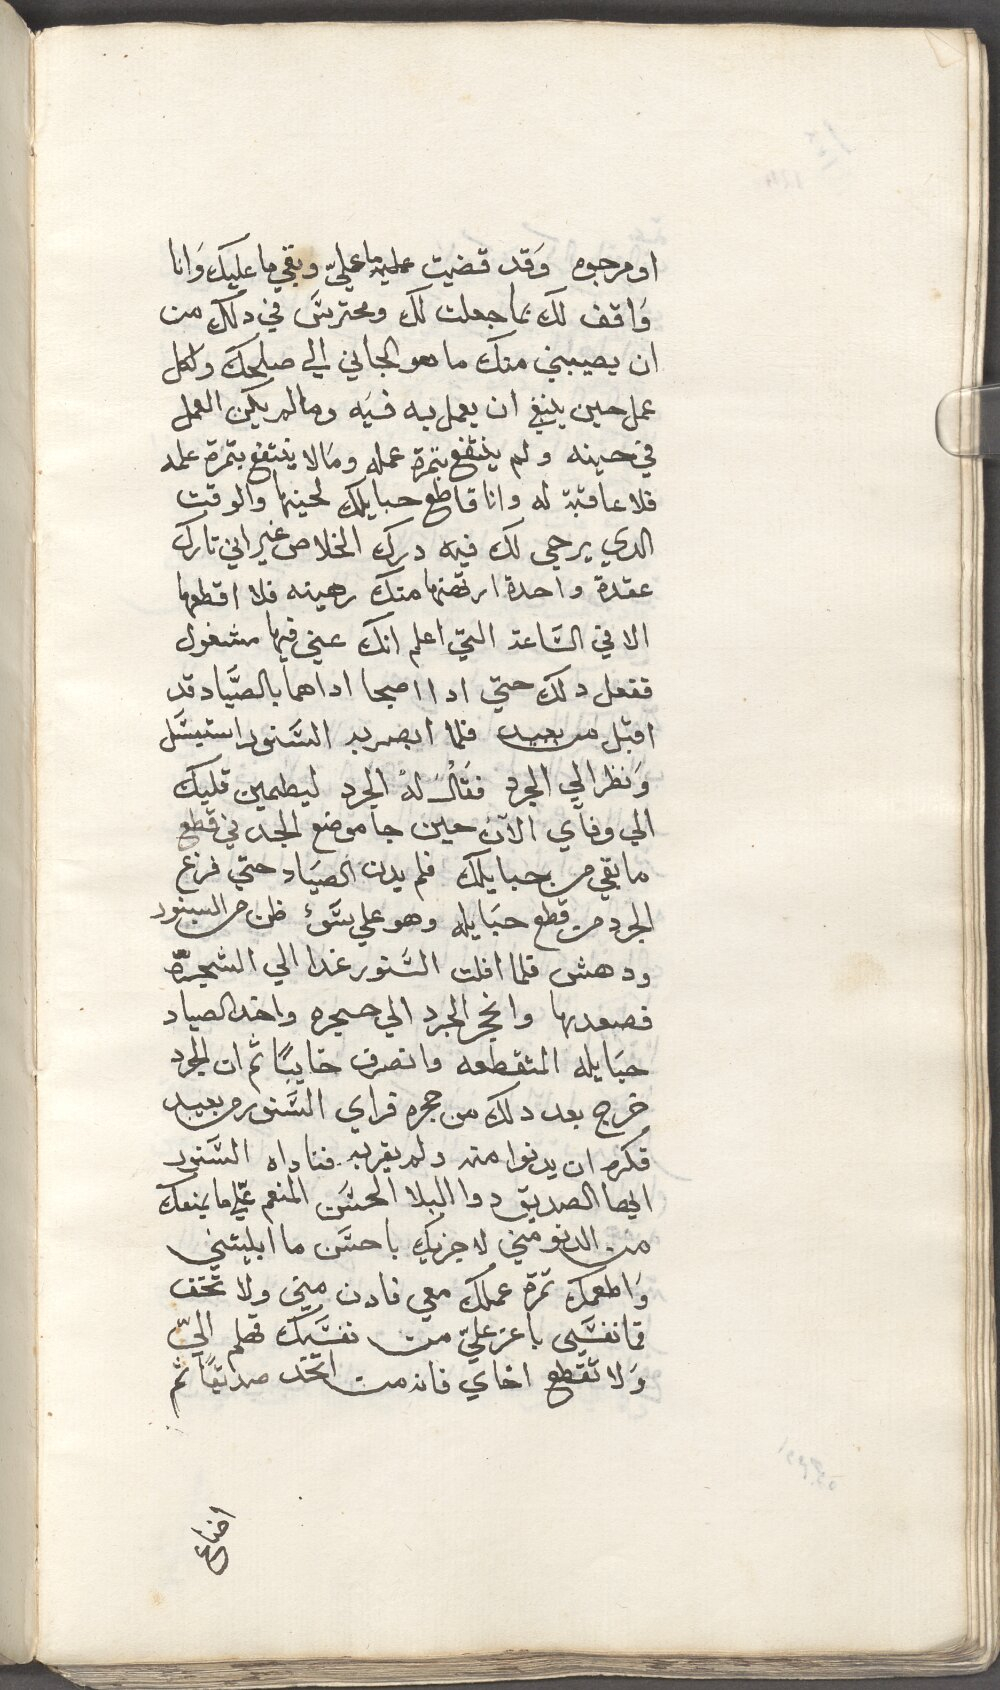 او مرجوه وَقد قضيت عليه ما عليّ وبقي ما عليك وَانا
وَاقف لك بما جعلت لك ومحترسَ في دلك من
ان يصيبني منك ما هو الجاني الي صلحك ولكل
عمل حين ينبغي ان يعمل به فيَه وما لم يكن العمل
في حينه ولم ينتفع بتمرة عمله وما لا ينتفع بتمرة عمله
فلا عاقبة له وانا قاطع حبايلك لحينها والوقت
الدي يرجي لك فيه درك الخلاص غير اني تارك
عقدة واحدة ارتهنها منك رهينه فلا اقطعها
الا في السَّاعة التي اعلم انك عني فيها مشغول
ففعل دلك حتي ادا اصبحا اداهما بالصَّياد قد
اقبل من بعيد فلما ابصر به السَّنور استيسَل
وَنظر الي الجرد فقَال لهُ الجرد ليطمين قلبك
الي وفآي الآن حين جا موضع الجد في قطع
ما بقي من حبايلك فلم يدن الصَياد حتي فرغ
الجرد من قطع حبَايله وهو علي سَوء ظن من السنور
ودهش فلما افلت السَّنور غدا الي الشجرة
فصعد بها وانحجر الجرد الي حجره واخد الصياد
حبَايله المتقطعه وانصرف خايبًا ثم ان الجرد
خرج بعد دلك من حجره فراي السَّنور من بعيد
فكره ان يدنوا منه ولم يقربه فناداه السَّنور
ايها الصديق دوا البلا الحسَن المنعم عَليّ ما يمنعك
من الدنو مني لاجزيك باحسَن ما ابليتني
وَاطعمك تمرة عملك معي فادن مني ولا تخف
فما نفسَي باعز عليّ من نفسَك فهلم اليّ
وَلا تقطع اخاي فانه من اتخد صديقًا ثم
اضاع